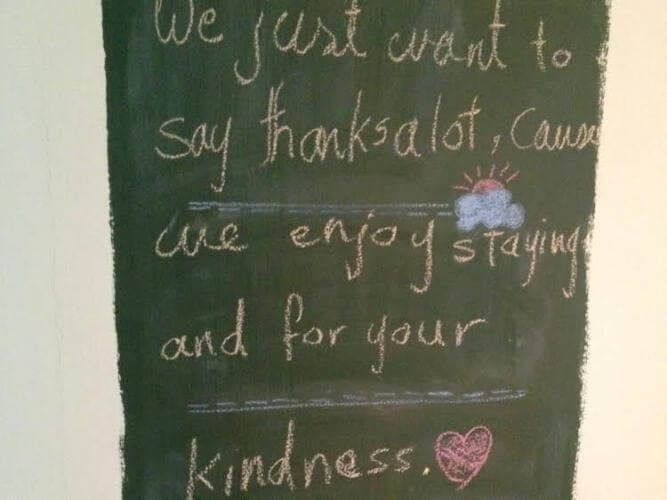 We just want to
say thanks a lot, Cause
we enjoy staying
and for your
kindness.